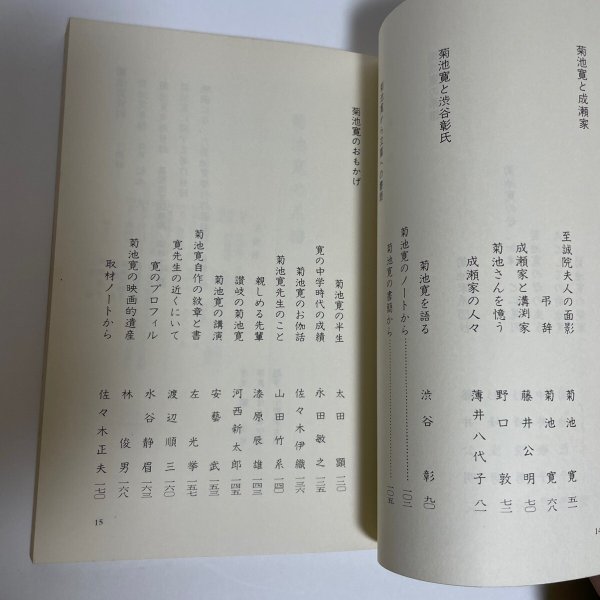 菊池寛と成瀬家
至誠院夫人の面影 菊池寛 五一
弔辞 菊池寛 六八
成瀬家と溝渕家 藤井公明 七〇
菊池さんを憶う 野口敦 七二
成瀬家の人々 薄井八代子 八一
菊池寛と渋谷彰氏
菊池寛を語る 渋谷彰 九〇
菊池寛のノートから…………一〇三
菊池寛の書簡から…………一〇五
14
菊池寛のおもかげ
菊池寛の半生 太田顕 一二〇
寛の中学時代の成績 永田敏之 一二五
菊池寛のお伽話 佐々木伊織 一三六
菊池寛先生のこと 山田竹系 一四〇
親しめる先輩 漆原辰雄 一四三
讃岐の菊池寛 河西新太郎 一四五
菊池寛の講演 安藝武 一五三
菊池寛自作の紋章と書 左光挙 一五七
寛先生の近くにいて 渡辺順三 一六〇
寛のプロフィル 水谷静眉 一六三
菊池寛の映画的遺産 林俊男 一六八
取材ノートから 佐々木正夫 一七〇
15